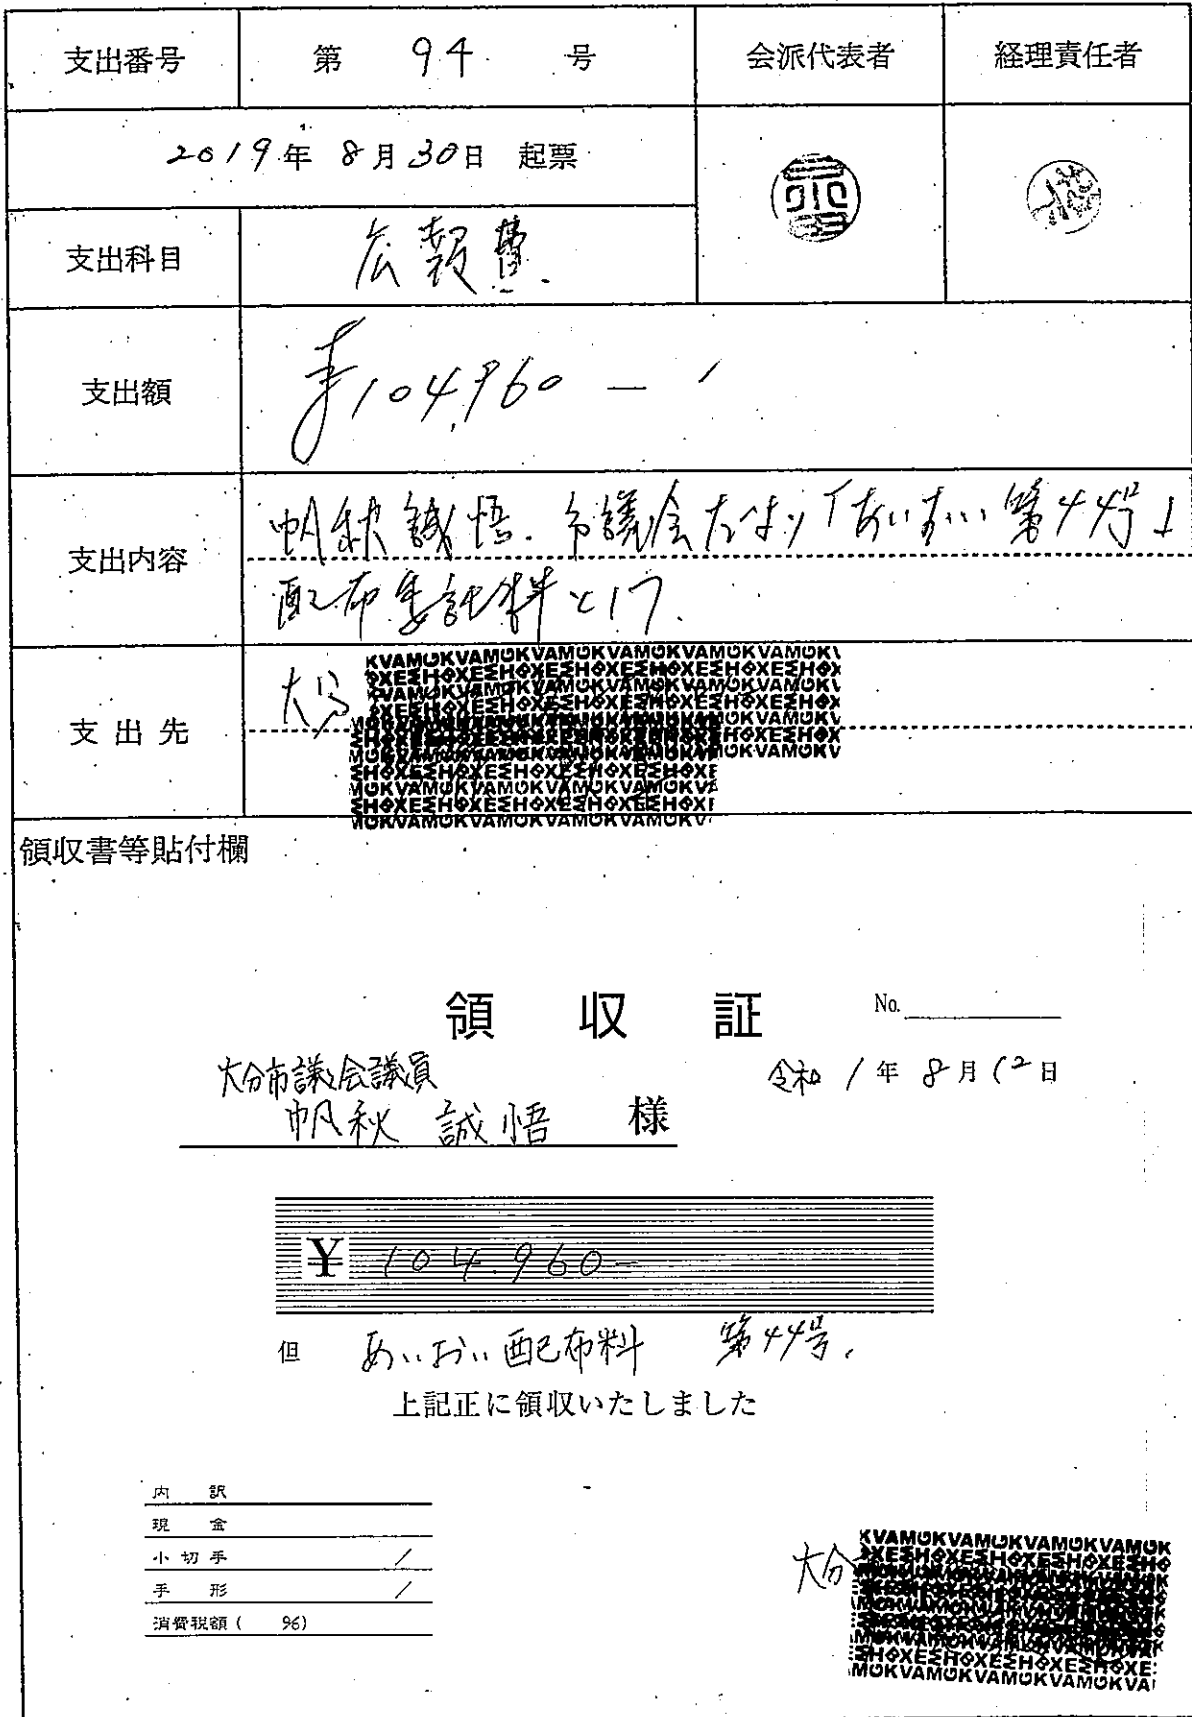 支出番号 第 94 号 会派代表者 経理責任者
2019年 8月30日 起票
支出科目 広報費.
支出額 ¥104,960 ―
支出内容 帆秋誠悟. 市議会だより「あいおい第44号」
配布委託料として.
支出先 大分
領収書等貼付欄
領収証 No.
大分市議会議員
令和 1年 8月12日
帆秋 誠悟 様
¥ 104.960-
但 あいおい配布料 第44号.
上記正に領収いたしました
内訳
現金
小切手 /
手形 /
消費税額( %)
大分